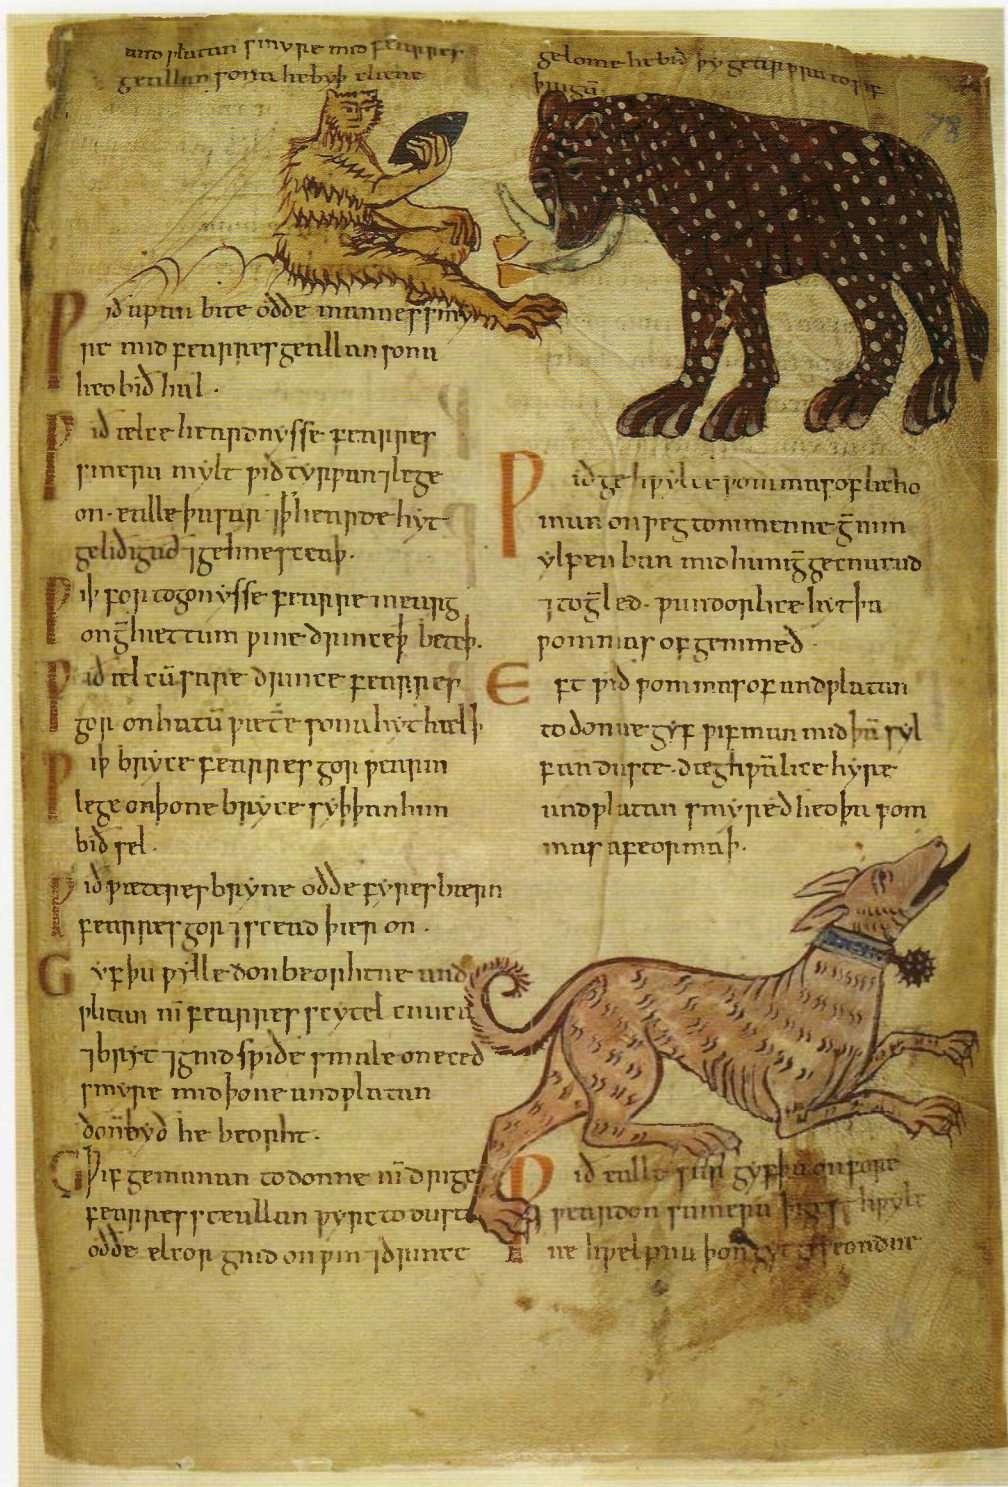 andplatan smyre mid fearres
geallan sona hebyþ clæne
ƿid apan bite oððe mannes smyre
re mid fearres geallan sona
heo bið hal.
ƿið ælce heardnysse fearres
smeru mylt ƿið tyrƿan ⁊ lege
on. ealle þa sar ⁊ þ hearde hyt
geliðigað ⁊ gehnesceaþ.
ƿiþ forþtogonysse fearres mearg
on gehættum ƿine drince þ beteþ.
ƿið ælcū sare drince fearres
gor on hatū ƿætere sona hyt hælþ
ƿiþ bryce fearres gor ƿearm
lege on þone bryce syþþan him
bið sel.
ƿið ƿæteres bryne oððe fyres bærn
fearres gor ⁊ scead þær on.
Gyf þu ƿylle don beorhtne and
platan nī fearres scytel cnuca
⁊ bryt ⁊ gnid sƿiðe smale on eced
smyre mid þone andplatan
ðoñ byð he beorht.
ƿif gemanan to donne nī drige
fearres sceallan ƿyrc to duste
oððe elcor gnid on ƿin ⁊ drince
gelome he bið þy geapƿra to ƿif
þingū.
ƿið gehƿylce ƿommas of lichо
man on ƿeg to nimenne ḡnim
ylpen ban mid hunig gecnucud
⁊ to ḡled. ƿundorlice hyt þa
ƿommas of genimeð
Eft ƿið ƿommas of andplatan
to donne gyf ƿifman mid þā syl
fan duste. dæghƿālice hyre
andplatan smyreð heo þa ƿom
mas afeormaþ.
ƿið ealle sar gyf þu on fore
ƿeardon sumera þigest hƿylc
ne hƿelpan þoñ gyt